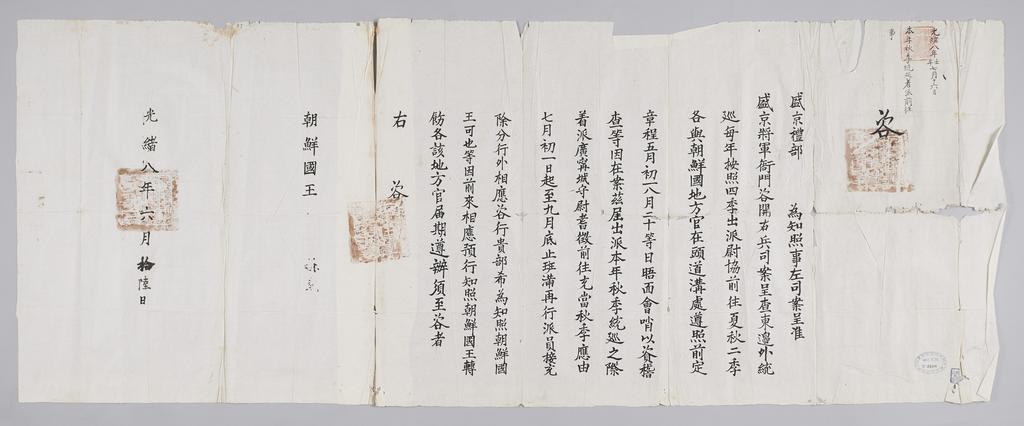 光緒八年七月十六日
本年秋季統巡着派前往
事
咨
盛京禮部 為知照事左司案呈准
盛京將軍衙門咨開右兵司案呈查東邊外統
巡每年按照四季出派尉協前往夏秋二季
各與朝鮮國地方官在頭道溝處遵照前定
章程五月初一八月二十等日晤面會哨以資稽
查等因在案茲屆出派本年秋季統巡之際
着派廣寧城守尉耆徵前往充當秋季應由
七月初一日起至九月底止班滿再行派員接充
除分行外相應咨行貴部希為知照朝鮮國
王可也等因前來相應預行知照朝鮮國王轉
飭各該地方官屆期遵辦須至咨者
右 咨
朝鮮國王
光緒八年六月拾陸日